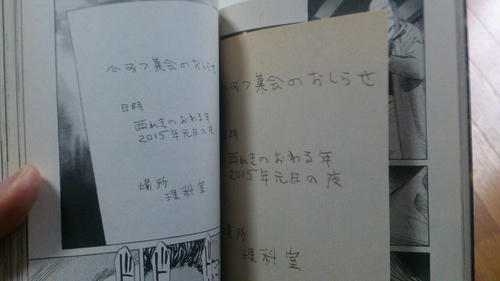 ひみつ集会のおしらせ
日時
西れきのおわる年
2015年元日の夜
場所
理科室
ひみつ集会のおしらせ
日時
西れきのおわる年
2015年元日の夜
場所
理科室
ド
ド